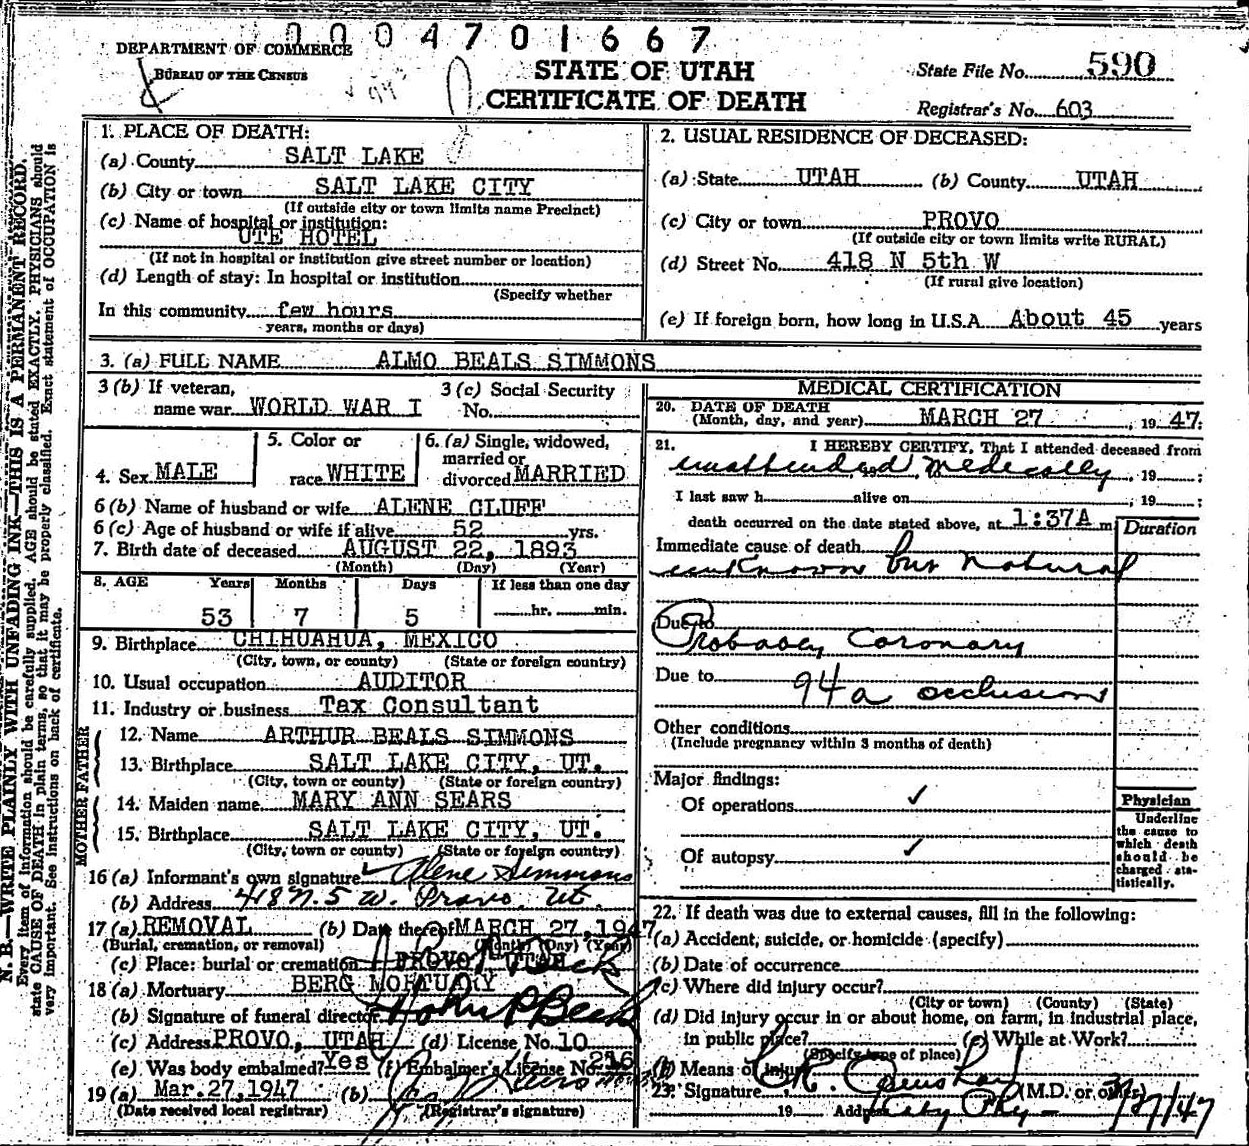 0004701667
DEPARTMENT OF COMMERCE
BUREAU OF THE CENSUS
STATE OF UTAH
CERTIFICATE OF DEATH
State File No. 590
Registrar's No. 603
1. PLACE OF DEATH:
(a) County SALT LAKE
(b) City or town SALT LAKE CITY
(If outside city or town limits name Precinct)
(c) Name of hospital or institution:
UTE HOTEL
(If not in hospital or institution give street number or location)
(d) Length of stay: In hospital or institution
(Specify whether
In this community few hours
years, months or days)
2. USUAL RESIDENCE OF DECEASED:
(a) State UTAH (b) County UTAH
(c) City or town PROVO
(If outside city or town limits write RURAL)
(d) Street No. 418 N 5th W
(If rural give location)
(e) If foreign born, how long in U.S.A. About 45 years
3. (a) FULL NAME ALMO BEALS SIMMONS
3 (b) If veteran,
name war WORLD WAR I
3 (c) Social Security
No.
4. Sex MALE
5. Color or
race WHITE
6. (a) Single, widowed,
married or
divorced MARRIED
6 (b) Name of husband or wife ALENE CLUFF
6 (c) Age of husband or wife if alive 52 yrs.
7. Birth date of deceased AUGUST 22, 1893
(Month) (Day) (Year)
8. AGE Years Months Days If less than one day
53 7 5 hr. min.
9. Birthplace CHIHUAHUA, MEXICO
(City, town, or county) (State or foreign country)
10. Usual occupation AUDITOR
11. Industry or business Tax Consultant
FATHER
12. Name ARTHUR BEALS SIMMONS
13. Birthplace SALT LAKE CITY, UT.
(City, town or county) (State or foreign country)
MOTHER
14. Maiden name MARY ANN SEARS
15. Birthplace SALT LAKE CITY, UT.
(City, town or county) (State or foreign country)
16 (a) Informant's own signature Alene Simmons
(b) Address 418 N. 5 W. Provo, Ut.
17 (a) REMOVAL (b) Date thereof MARCH 27, 1947
(Burial, cremation, or removal) (Month) (Day) (Year)
(c) Place: burial or cremation PROVO, UTAH
18 (a) Mortuary BERG MORTUARY
(b) Signature of funeral director John P Beck
(c) Address PROVO, UTAH (d) License No. 10
(e) Was body embalmed? Yes (f) Embalmer's License No. 216
19 (a) Mar. 27, 1947 (b)
(Date received local registrar) (Registrar's signature)
MEDICAL CERTIFICATION
20. DATE OF DEATH
(Month, day, and year) MARCH 27, 19 47
21. I HEREBY CERTIFY, That I attended deceased from
unattended medically, 19 ;
I last saw h alive on , 19 ;
death occurred on the date stated above, at 1:37A m.
Duration
Immediate cause of death
unknown but natural
Due to
Probabey Coronary
Due to 94a occlusion
Other conditions
(Include pregnancy within 3 months of death)
Major findings:
Of operations ✓
Of autopsy ✓
Physician
Underline
the cause to
which death
should be
charged sta-
tistically.
22. If death was due to external causes, fill in the following:
(a) Accident, suicide, or homicide (specify)
(b) Date of occurrence
(c) Where did injury occur?
(City or town) (County) (State)
(d) Did injury occur in or about home, on farm, in industrial place,
in public place? (e) While at Work?
(Specify type of place)
(f) Means of injury
23. Signature (M.D. or other)
19 Address City Phy 3/27/47
N. B.—WRITE PLAINLY WITH UNFADING INK—THIS IS A PERMANENT RECORD.
Every item of information should be carefully supplied. AGE should be stated EXACTLY. PHYSICIANS should
state CAUSE OF DEATH in plain terms, so that it may be properly classified. Exact statement of OCCUPATION is
very important. See instructions on back of certificate.